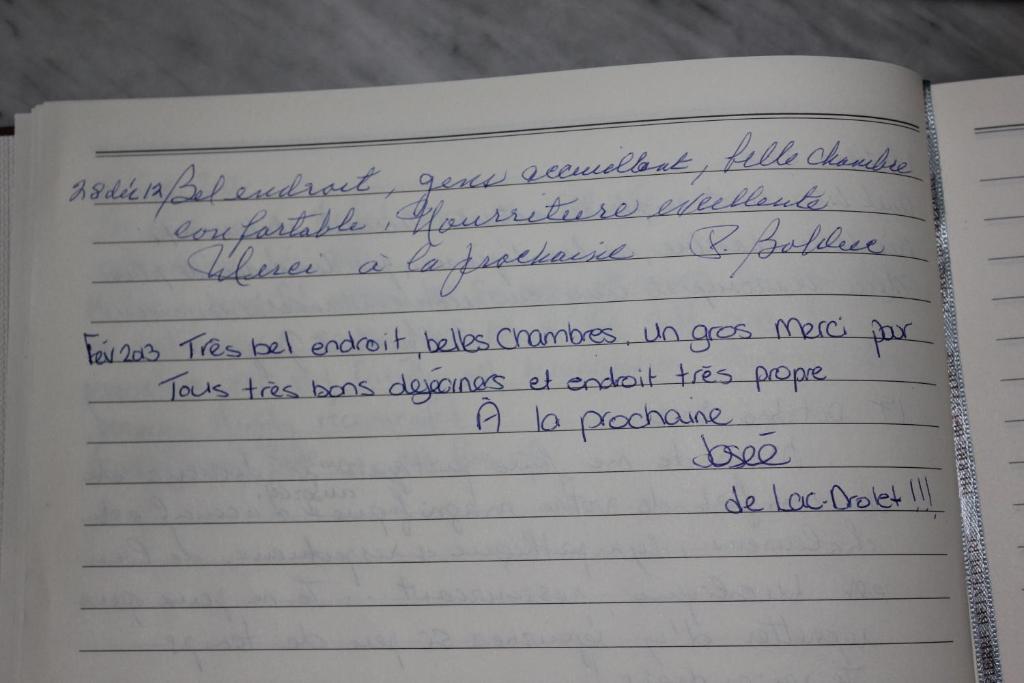 28 déc 12 Bel endroit, gens accuillant, belle chambre
confortable. Nourriture excellente
Merci à la prochaine P. Bolduc
Fév 2013 Très bel endroit, belles chambres, un gros merci pour
Tous très bons dejéciners et endroit très propre
À la prochaine
Josée
de Lac-Drolet!!!